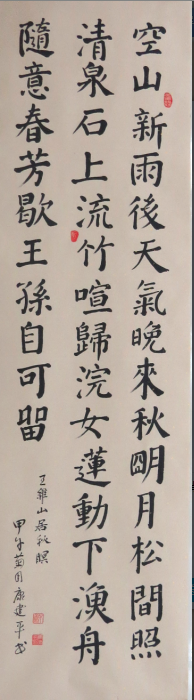 空山新雨後天氣晚來秋明月松間照
清泉石上流竹喧歸浣女蓮動下漁舟
隨意春芳歇王孫自可留
王維山居秋暝
甲午菊月康建平書